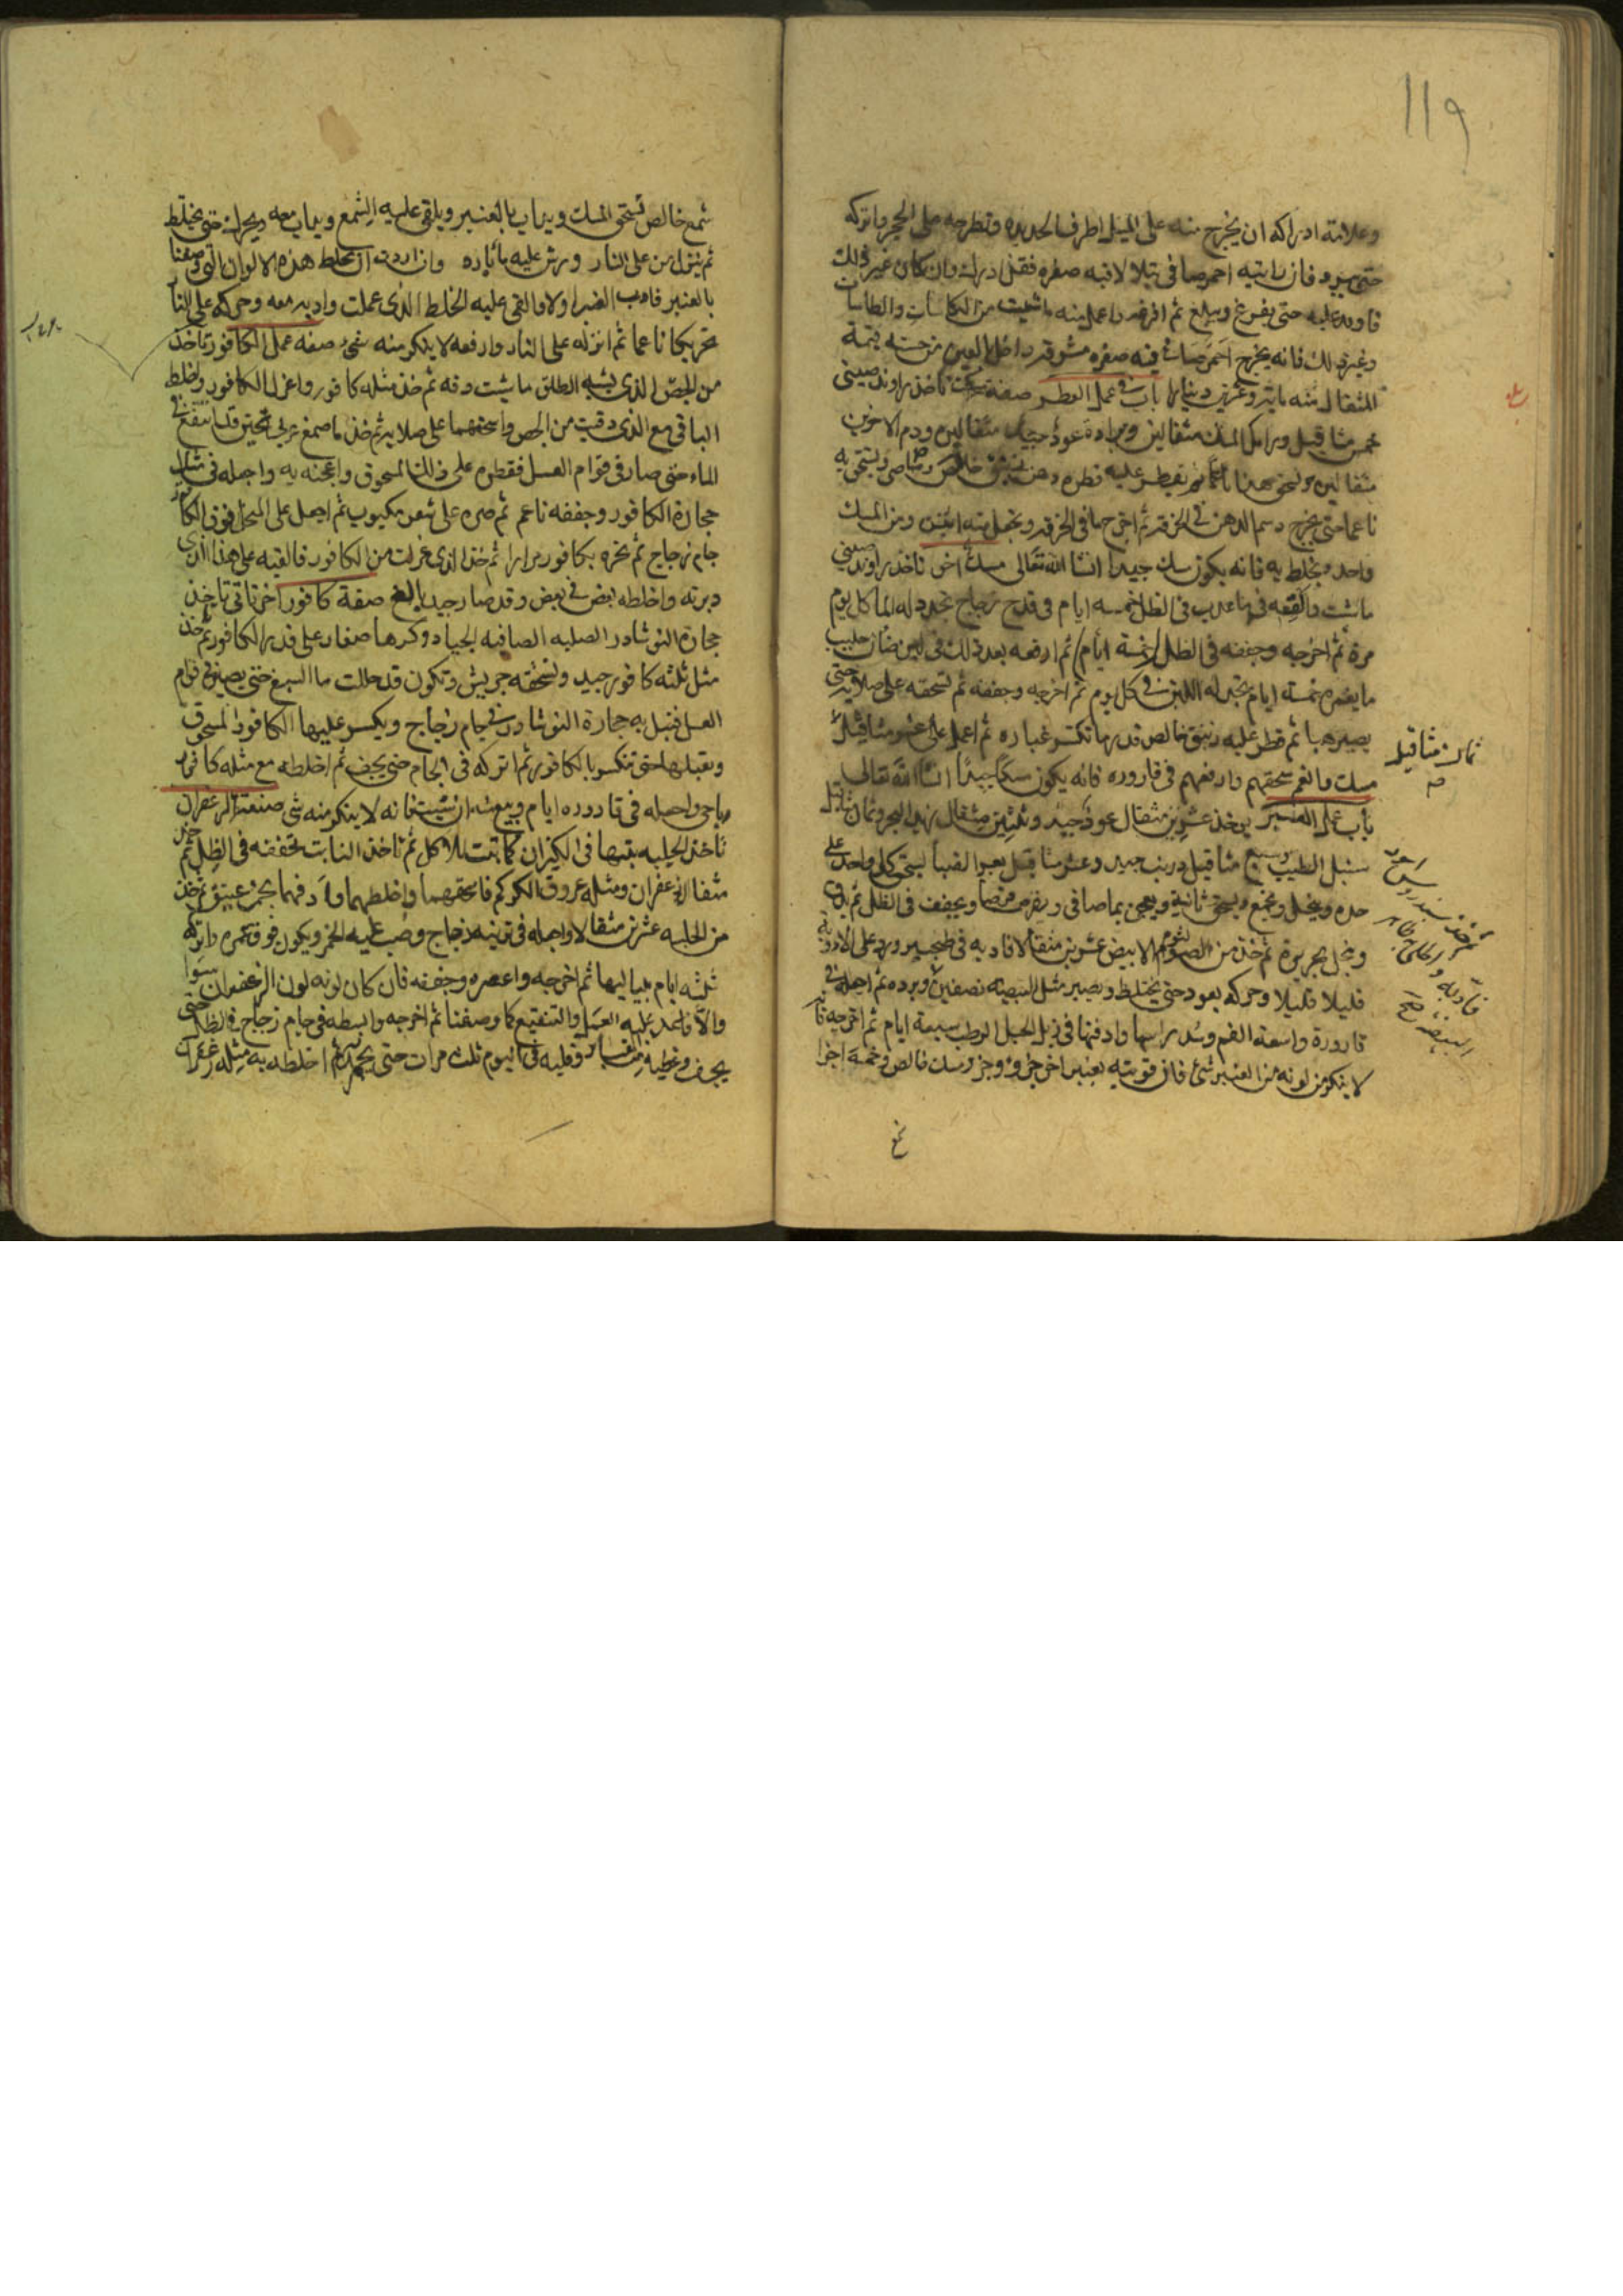 ١١٩
وعلامة ادراكه ان يخرج منه على الميل اطراف الحديده وتطرحه على الحجر واتركه
حتى يبرد فان رايته احمر صافي يتلالا فيه صفره فقد ادرك وان كان غير ذلك
فاوقد عليه حتى يفرغ ويبلغ ثم افرغه واعمل منه ما شيت من الكاسات والطاسات
وغير ذلك فانه يخرج احمر صاف فيه صفره مشرقه داخل العين من حسنه قيمة
المثقال منه ماية وعشرين دينارا باب في عمل العطر صفة سك تاخذ راوند صيني
خمس مثاقيل ورامك المسك مثقالين وبرادة عود جيد مثقالين ودم الاخوين
مثقالين وتسحق هذا ناعما ثم تقطر عليه قطره دهن زنبق خالص رصاصي وتسحق به
ناعما حتى يخرج دسم الدهن في الخرقه ثم اخرجها في الخرقه وتجعل منه اثنين ومن المسك
واحد وتخلط به فانه يكون سك جيدا انشا الله تعالى مسك اخر تاخذ راوند صيني
ما شت والقعه في ما عدب في الظل خمسه ايام في قدح زجاج تجدد له الما كل يوم
مرة ثم اخرجه وجففه في الظل خمسة ايام ثم ارفعه بعد ذلك في لبن ضان حليب
ما يغمره خمسة ايام تجدد له اللبن في كل يوم ثم اخرجه وجففه ثم تسحقه على صلايه حتى
يصير هبا ثم قطر عليه زنبق خالص قدر ما تكسر غباره ثم اعمل على عشر مثاقيل
مسك وانعم سحقهم وارفعهم في قاروره فانه يكون مسكا جيدا انشا الله تعالى
ثمان مثاقيل
باب عمل العنبر يوخذ عشرين مثقال عود جيد وثلثين مثقال زبد البحر وثمان مثاقيل
سنبل الطيب وسبع مثاقيل زرنب جيد وعشر مثاقيل بعر الضبا يسحق كل واحد على
حده وينخل ويجمع ويسحق ثانية ويعجن بما صافي ويقرص قرصا ويجفف في الظل ثم يدق
وينخل بحريرة ثم خذ من الشمع الابيض عشرين مثقالا فاديه في طنجير ورد على الادوية
قليلا قليلا وحركه بعود حتى يختلط ويصير مثل البيضه نصفين وبرده ثم اجعله في
قارورة واسعة الفم وسد راسها وادفنها في زبل الخيل الرطب سبعة ايام ثم اخرجه فانه
لا ينكر من لونه من العنبر شئ فان قويته بعنبر اخر جزو وجزو مسك خالص وخمسة اجزا
شمع
شمع خالص تسحق المسك ويداب بالعنبر ويلقى عليه الشمع ويداب معه ويحرك حتى يختلط
ثم ينزل من على النار ويرش عليه ماء بارده وان اردت ان تخلط هذه الالوان التي وصفنا
بالعنبر فادب العنبر اولا والقي عليه الخلط الذي عملت واديه معه وحركه على النار
تحريكا ناعما ثم انزله على النار وارفعه لا ينكر منه شئ صفه عمل الكافور تاخذ
من الجص الذي يشبه الطلق ما شيت دقه ثم خذ مثله كافور واعزل الكافور واخلط
الباقي مع الذي دقيت من الجص واسحقهما على صلايه ثم خذ ما صمغ عربي تحين قد انتقع في
الماء حتى صار في قوام العسل فقطره على ذلك المسحوق واعجنه به واجعله في مثل
حجارة الكافور وجففه ناعم ثم صره على شعر مكبوب ثم اجعل على المنخل فوق الكافور
جام زجاج ثم بخره بكافور مرارا ثم خذ الذي عزلت من الكافور فالقيه على هذا الذي
دبرته واخلطه بعض في بعض وقد صار جيد بالغ صفة كافور اخر ثاني تاخذ
حجارة النوشادر الصلبه الصافيه الجياد وكسرها صغار على قدر الكافور ثم خذ
مثل ثلثه كافور جيد وتسحقه جريش وتكون قد حللت ما الصمغ حتى يصير في قوام
العسل فتبل به حجارة النوشادر في جام زجاج ويكسر عليها الكافور المسحوق
وتقبلها حتى تنكسر بالكافور ثم اتركه في الجام حتى يجف ثم اخلطه مع مثله كافور
رباحي واجعله في قاروره ايام وبيعه ان شيت فانه لا ينكر منه شى صنعة الزعفران
تاخذ الحلبه تنبتها في الكيزان كما تنبت للاكل ثم تاخذ النابت تجففه في الظل ثم خذ
مثقال زعفران ومثله عروق الكركم فاسحقهما واخلطهما ودفهما بخمر عتيق ثم خذ
من الحلبه عشرين مثقالا واجعله في قنينه زجاج وصب عليه الخمر ويكون فوق غمره واتركه
ثلثه ايام بلياليها ثم اخرجه واعصره وجففه فان كان لونه لون الزعفران سوا
والا فاعد عليه العمل والتنقيع كما وصفنا ثم اخرجه وابسطه في جام زجاج في الظل حتى
يجف وغطيه من الغبار وقلبه في اليوم ثلث مرات حتى يحمر ثم اخلطه به مثله زعفران